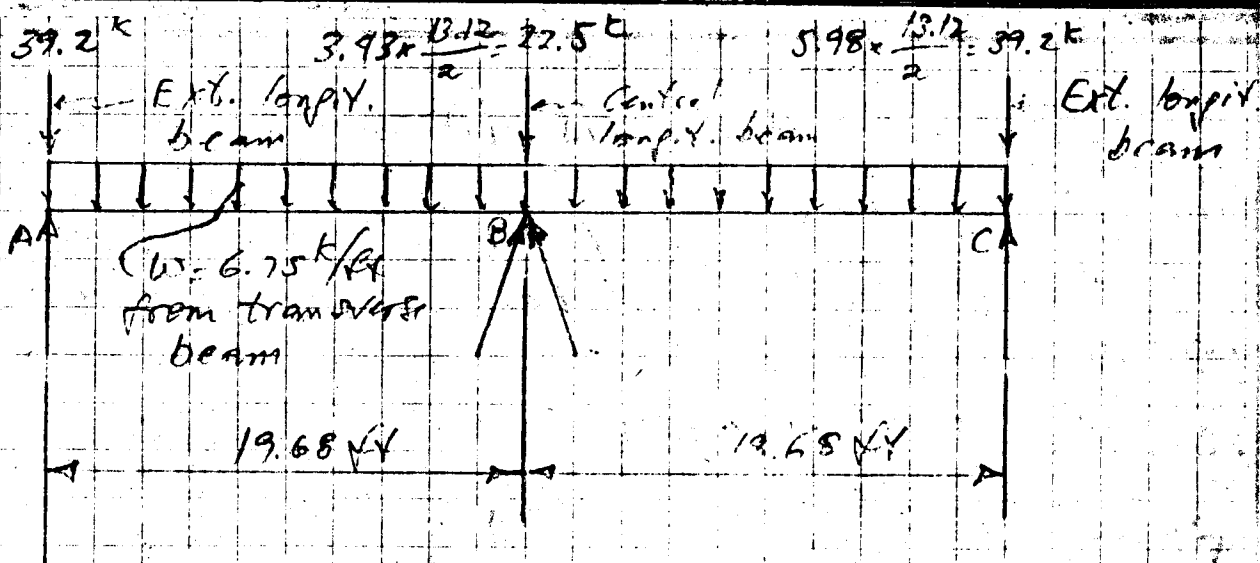 39.2 k
3.43 x 13.12/2 = 22.5 k
5.98 x 13.12/2 = 39.2 k
Ext. longit.
beam
Central
longit. beam
Ext. longit.
beam
A
B
C
w = 6.75 k/ft
from transverse
beam
19.68 ft
19.68 ft